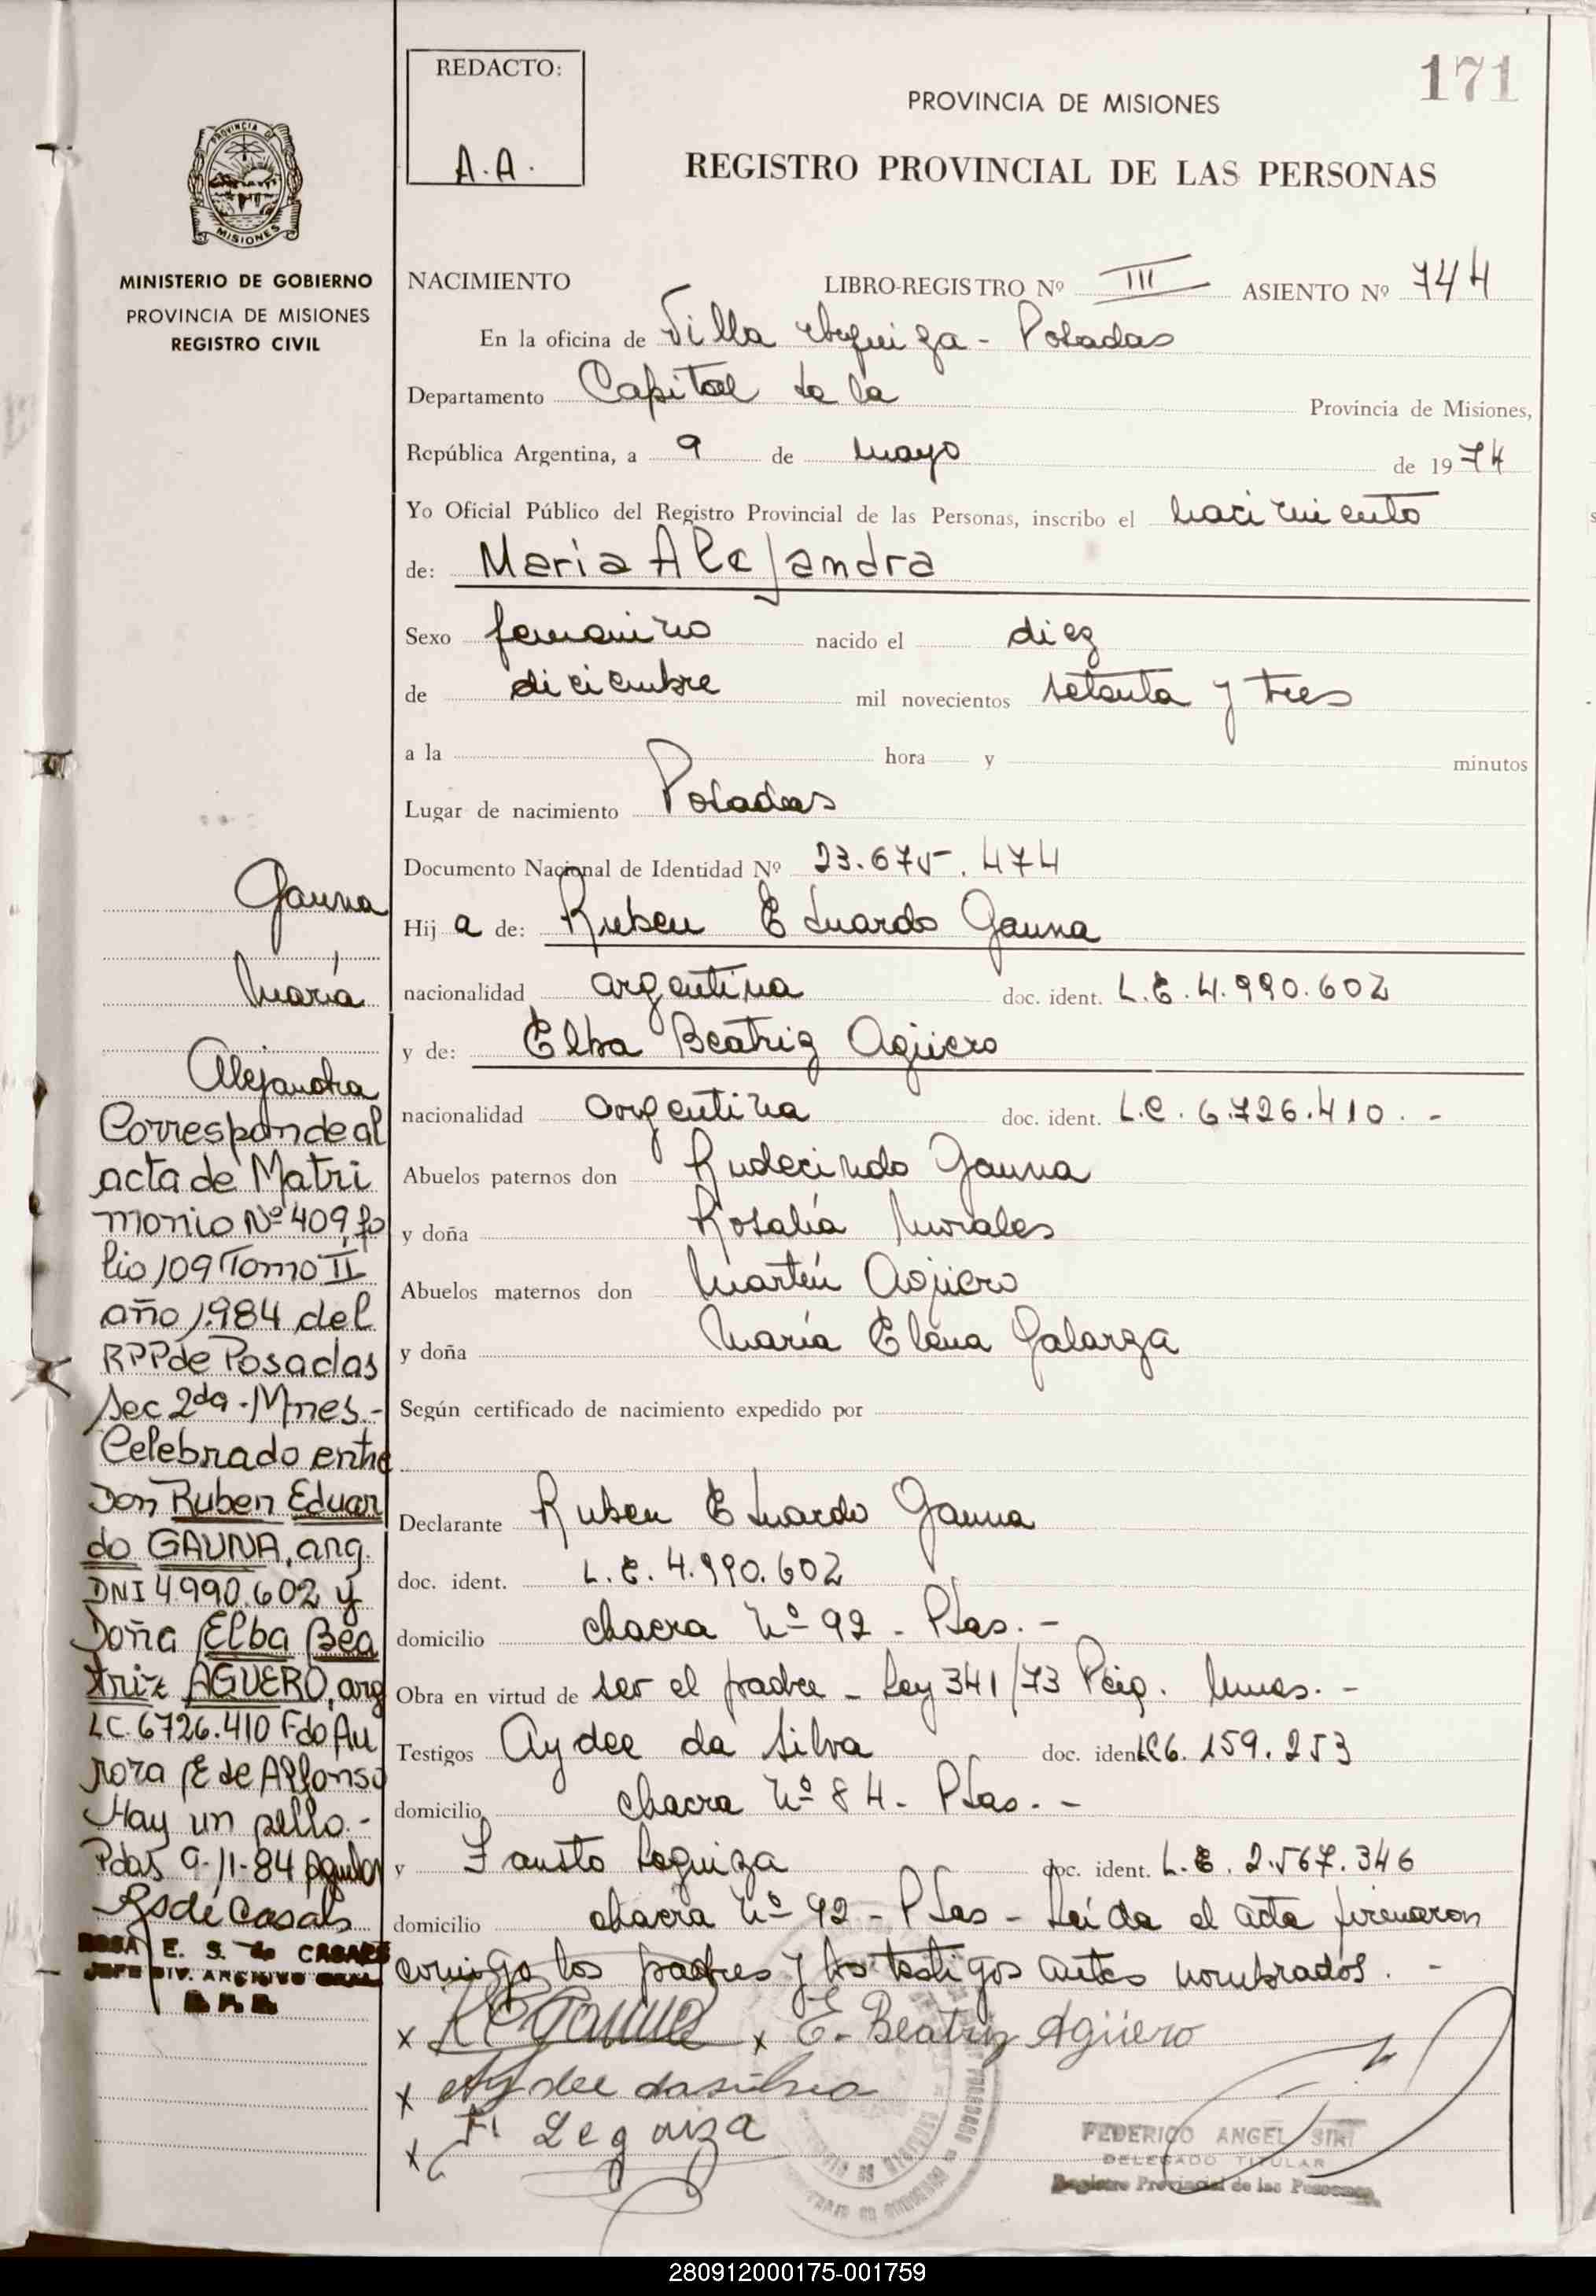 REDACTO:
A.A.
171
PROVINCIA DE MISIONES
REGISTRO PROVINCIAL DE LAS PERSONAS
PROVINCIA DE
MISIONES
MINISTERIO DE GOBIERNO
PROVINCIA DE MISIONES
REGISTRO CIVIL
NACIMIENTO LIBRO-REGISTRO Nº III ASIENTO Nº 744
En la oficina de Villa Urquiza - Posadas
Departamento Capital de la Provincia de Misiones,
República Argentina, a 9 de mayo de 1974
Yo Oficial Público del Registro Provincial de las Personas, inscribo el nacimiento
de: Maria Alejandra
Sexo femenino nacido el diez
de diciembre mil novecientos setenta y tres
a la hora y minutos
Lugar de nacimiento Posadas
Documento Nacional de Identidad Nº 23.675.474
Hija de: Ruben Eduardo Gauna
nacionalidad argentina doc. ident. L.E. 4.990.602
y de: Elba Beatriz Agüero
nacionalidad argentina doc. ident. L.C. 6.726.410.-
Abuelos paternos don Rudecindo Gauna
y doña Rosalía Morales
Abuelos maternos don Martín Agüero
y doña María Elena Galarza
Según certificado de nacimiento expedido por
Declarante Ruben Eduardo Gauna
doc. ident. L.E. 4.990.602
domicilio chacra Nº 92 - Pdas.-
Obra en virtud de ser el padre - Ley 341/73 Pcia. Mnes.-
Testigos Aydee da Silva doc. ident. LC 6.159.253
domicilio chacra Nº 84 - Pdas.-
y Fausto Leguiza doc. ident. L.E. 2.567.346
domicilio chacra Nº 92 - Pdas - Leída el acta firmaron
conmigo los padres y los testigos antes nombrados.-
x R E Gauna x E. Beatriz Agüero
x Aydee da silva
x F. Leguiza
FEDERICO ANGEL SIRI
DELEGADO TITULAR
Registro Provincial de las Personas
Gauna
María
Alejandra
Corresponde al
acta de Matri
monio Nº 409, fo
lio 109 Tomo II
año 1984 del
RPP de Posadas
Sec 2da.-Mnes.-
Celebrado entre
Don Ruben Eduar
do GAUNA, arg.
DNI 4990.602 y
Doña Elba Bea
triz AGUERO, arg
LC. 6726.410 Fdo Au
rora E de Alfonso
Hay un sello.-
Pdas 9-11-84
ROSA E. S. de CASALS
JEFE DIV. ARCHIVO GRAL.
280912000175-001759